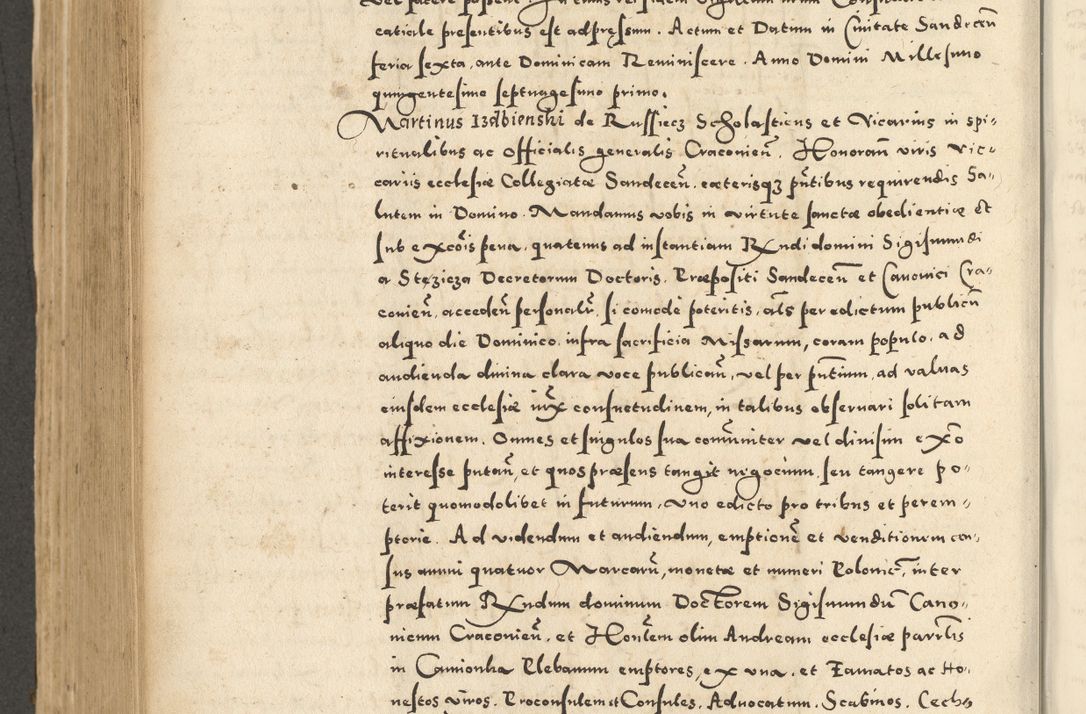 catiale presentibus est adpressum. Actum et Datum in Civitate Sandecen
feria sexta, ante Dominicam Reminiscere. Anno Domini Millesimo
quingentesimo septuagesimo primo.
Martinus Izdbienski de Russiecz Scholasticus et Vicarius in spi-
ritualibus ac Officialis generalis Cracovieñ. Honorañ viris Vic-
cariis ecclesiæ Collegiatæ Sandeceñ. cæterisqз pñtibus requirendis Sa-
lutem in Domino. Mandamus vobis in virtute sanctæ obedientiæ et
sub excõis pena, quatenus ad instantiam Rxndi domini Sigismundi
a Stęzicza Decretorum Doctoris. Præpositi Sandeceñ et Canonici Cra-
covieñ, accedeñ personalr, si comode poteritis, als per edictum publicũ
aliquo die Dominico. infra sacrificia Missarum, coram populo. ad
audienda divina clara voce publicañ, vel per pñtium, ad valvas
eiusdem ecclesiæ iux consuetudinem, in talibus observari solitam
affixionem. Omnes et singulos sua comũniter vel divisim exõ
interesse putañ, et quos præsens tangit negocium, seu tangere po-
terit quomodolibet in futurum, uno edicto pro tribus et perem-
ptorie. Ad videndum et audiendum, emptionẽ et venditionem cen-
sus annui quatuor Marcarũ, monetæ et numeri Polonic, inter
præfatum Rxndum dominum Doctorem Sigismundũ Cano-
nicum Cracovieñ. et Honlem olim Andream ecclesiæ parrlis
in Camionka Plebanum emptores, ex una. et Famatos ac Ho-
nestos viros. Proconsulem et Consules. Advocatum. Scabinos. Cechos